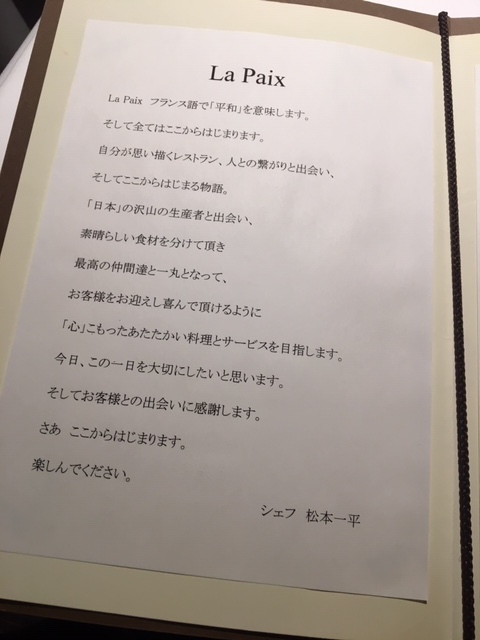 La Paix
La Paix　フランス語で「平和」を意味します。
そして全てはここからはじまります。
自分が思い描くレストラン、人との繋がりと出会い、
そしてここからはじまる物語。
「日本」の沢山の生産者と出会い、
素晴らしい食材を分けて頂き
最高の仲間達と一丸となって、
お客様をお迎えし喜んで頂けるように
「心」こもったあたたかい料理とサービスを目指します。
今日、この一日を大切にしたいと思います。
そしてお客様との出会いに感謝します。
さあ　ここからはじまります。
楽しんでください。
シェフ　松本一平